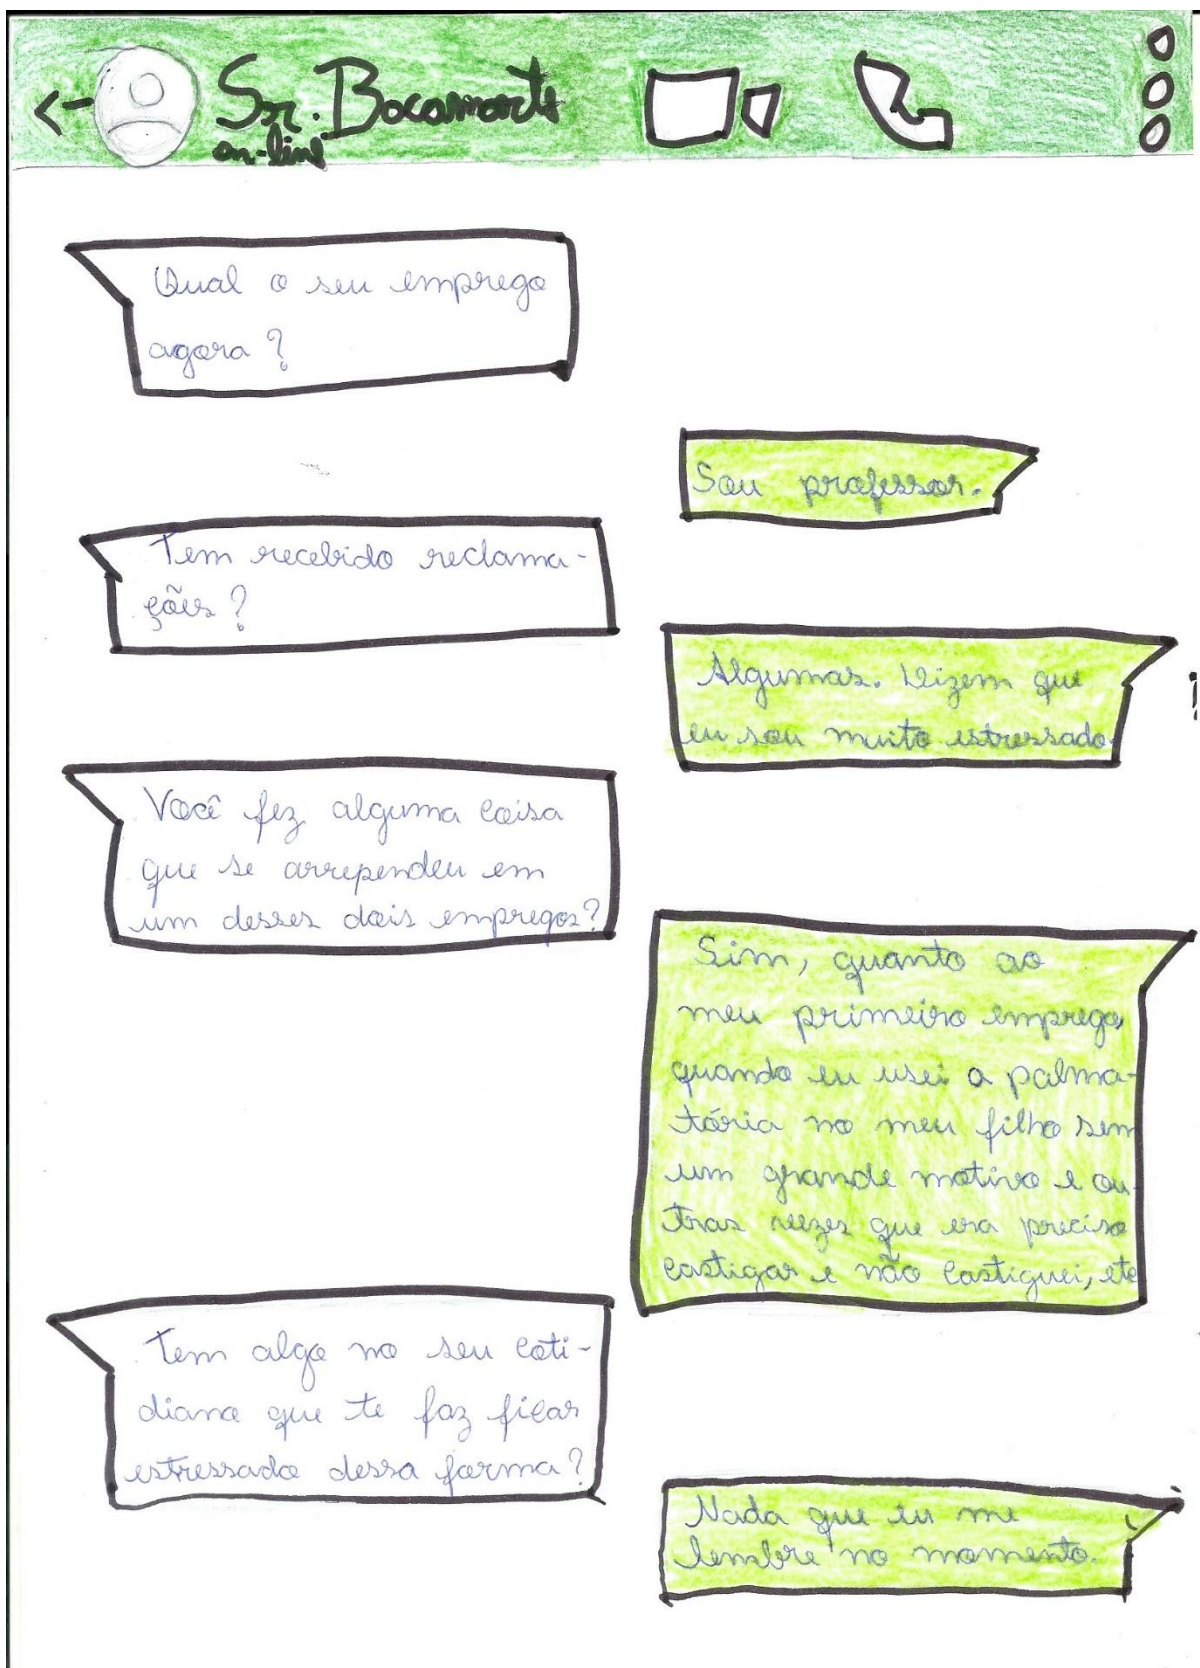 Sr. Bacamarte
on-line
Qual o seu emprego
agora?
Sou professor.
Tem recebido reclama-
ções?
Algumas. Dizem que
eu sou muito estressado.
Você fez alguma coisa
que se arrependeu em
um desses dois empregos?
Sim, quanto ao
meu primeiro emprego,
quando eu usei a palma-
tória no meu filho sem
um grande motivo e ou-
tras vezes que era preciso
castigar e não castiguei, etc
Tem algo no seu coti-
diano que te faz ficar
estressado dessa forma?
Nada que eu me
lembre no momento.